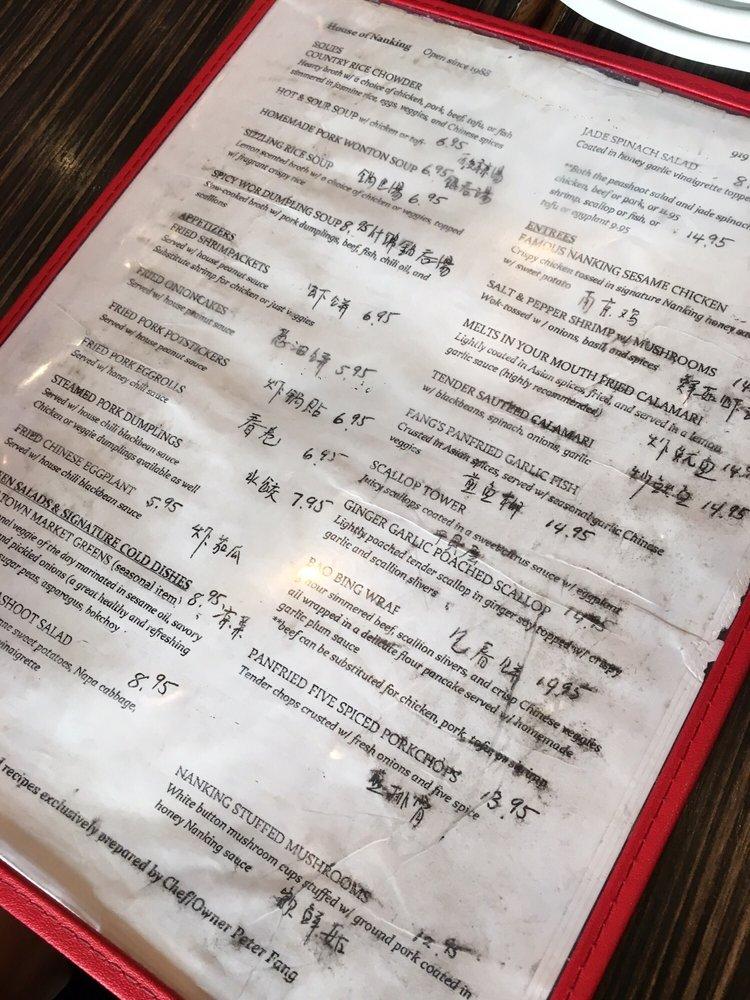 House of Nanking Open since 1988
SOUPS
COUNTRY RICE CHOWDER
Hearty broth w/ a choice of chicken, pork, beef, tofu, or fish
simmered in jasmine rice, eggs, veggies, and Chinese spices
HOT & SOUR SOUP w/ chicken or tofu 6.95
HOMEMADE PORK WONTON SOUP 6.95
SIZZLING RICE SOUP 鍋巴湯 6.95
Lemon scented broth w/ a choice of chicken or veggies, topped
w/ fragrant crispy rice
SPICY WOR DUMPLING SOUP 8.95
Slow-cooked broth w/ pork dumplings, beef, fish, chili oil, and
scallions
APPETIZERS
FRIED SHRIMP PACKETS
Served w/ house peanut sauce
Substitute shrimp for chicken or just veggies
虾饼 6.95
FRIED ONIONCAKES
Served w/ house peanut sauce
葱油饼 5.95
FRIED PORK POTSTICKERS
Served w/ house peanut sauce
炸鍋貼 6.95
FRIED PORK EGGROLLS
Served w/ honey chili sauce
春卷 6.95
STEAMED PORK DUMPLINGS
Served w/ house chili blackbean sauce
Chicken or veggie dumplings available as well
水餃 7.95
FRIED CHINESE EGGPLANT 5.95
Served w/ house chili blackbean sauce
炸茄瓜
SALADS & SIGNATURE COLD DISHES
TOWN MARKET GREENS (seasonal item) 8.95
veggie of the day marinated in sesame oil, savory
and pickled onions (a great healthy and refreshing
sugar peas, asparagus, bokchoy
SALAD
sweet potatoes, Napa cabbage,
vinaigrette
8.95
JADE SPINACH SALAD
Coated in honey garlic vinaigrette
**Both the peashoot salad and jade spinach
chicken, beef or pork, or 14.95
shrimp, scallop or fish, or
tofu or eggplant 9.95
14.95
ENTREES
FAMOUS NANKING SESAME CHICKEN
Crispy chicken tossed in signature Nanking honey
w/ sweet potato
南京鸡
SALT & PEPPER SHRIMP w/ MUSHROOMS
Wok-tossed w/ onions, basil and spices
MELTS IN YOUR MOUTH FRIED CALAMARI
Lightly coated in Asian spices, fried, and served in a lemon
garlic sauce (highly recommended)
TENDER SAUTEED CALAMARI
w/ blackbeans, spinach, onions, garlic
14.95
FANG'S PANFRIED GARLIC FISH
Crusted in Asian spices, served w/ seasonal garlic Chinese
veggies
14.95
SCALLOP TOWER
Juicy scallops coated in a sweet citrus sauce w/ eggplant
GINGER GARLIC POACHED SCALLOP
Lightly poached tender scallop in ginger soy topped w/ crispy
garlic and scallion slivers
14.95
BAO BING WRAP
hour simmered beef, scallion slivers, and crisp Chinese veggies
all wrapped in a delicate flour pancake served w/ homemade
garlic plum sauce
**beef can be substituted for chicken, pork, tofu or shrimp
PANFRIED FIVE SPICED PORKCHOPS
Tender chops crusted w/ fresh onions and five spice
13.95
NANKING STUFFED MUSHROOMS
White button mushroom cups stuffed w/ ground pork coated in
honey Nanking sauce
12.95
recipes exclusively prepared by Chef/Owner Peter Fang